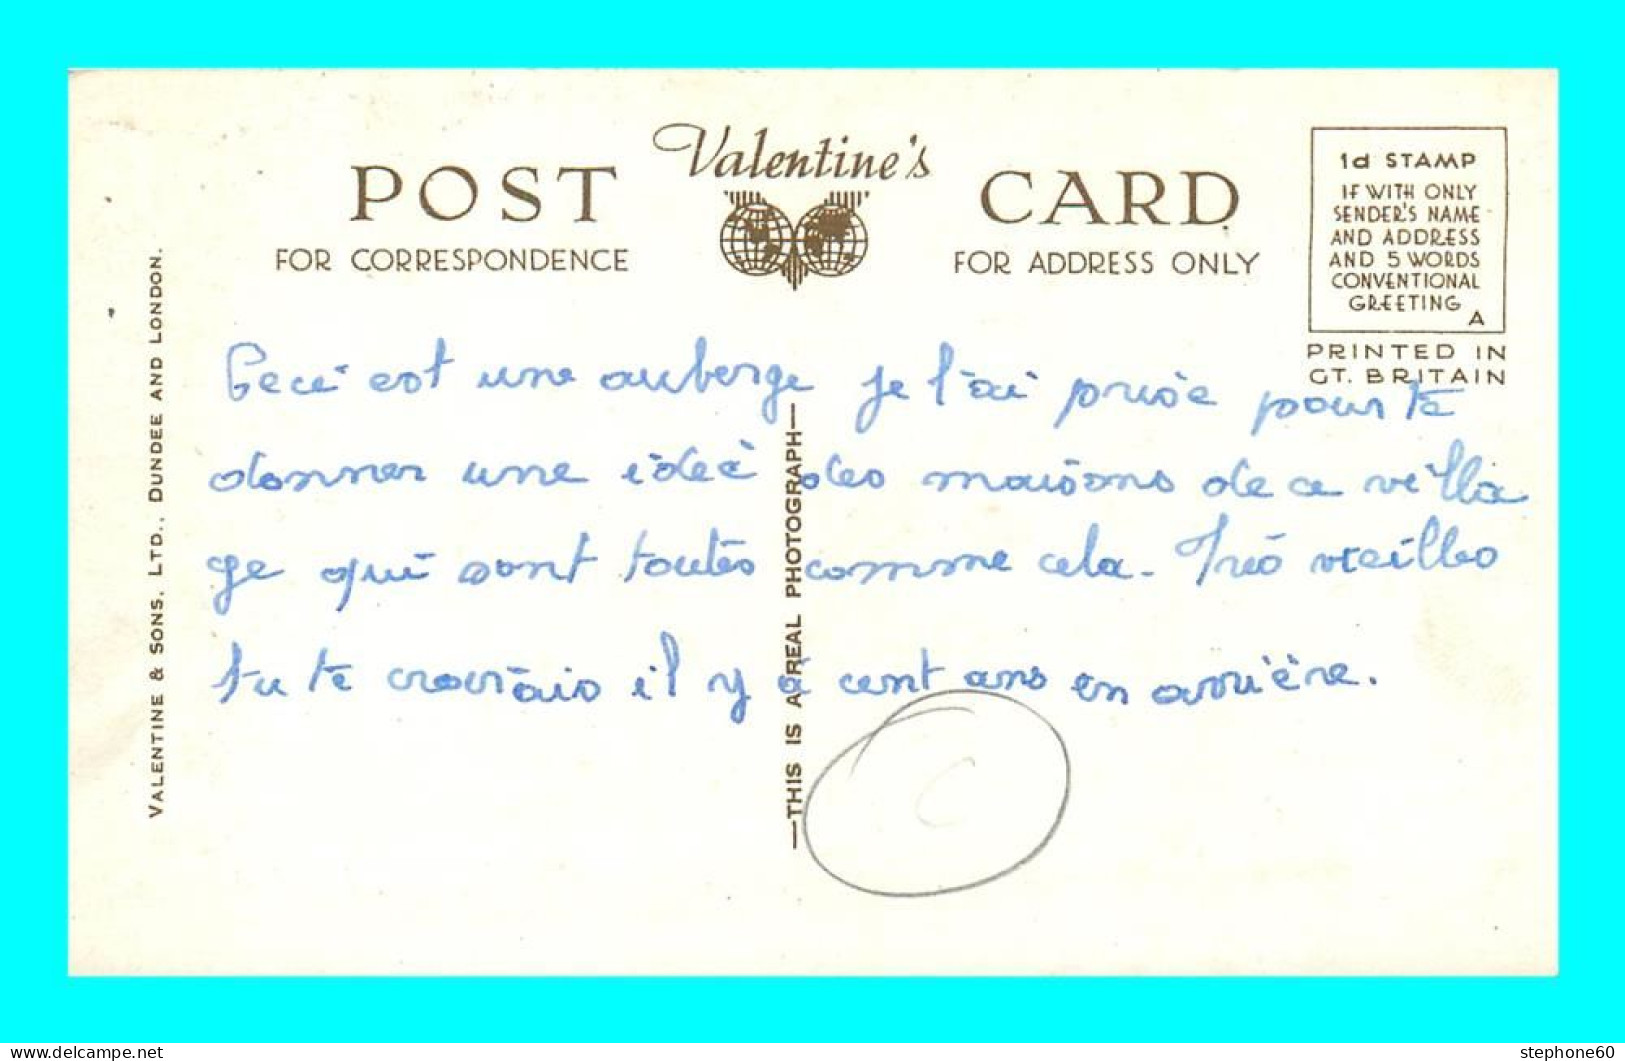 Valentine's
POST CARD
FOR CORRESPONDENCE
FOR ADDRESS ONLY
1d STAMP
IF WITH ONLY
SENDER'S NAME
AND ADDRESS
AND 5 WORDS
CONVENTIONAL
GREETING
A
PRINTED IN
GT. BRITAIN
VALENTINE & SONS, LTD., DUNDEE AND LONDON.
—THIS IS A REAL PHOTOGRAPH—
Ceci est une auberge je l'ai prise pour te
donner une idée des maisons de ce villa
ge qui sont toutes comme cela. Très vieilles
tu te croirais il y a cent ans en arrière.
stephone60